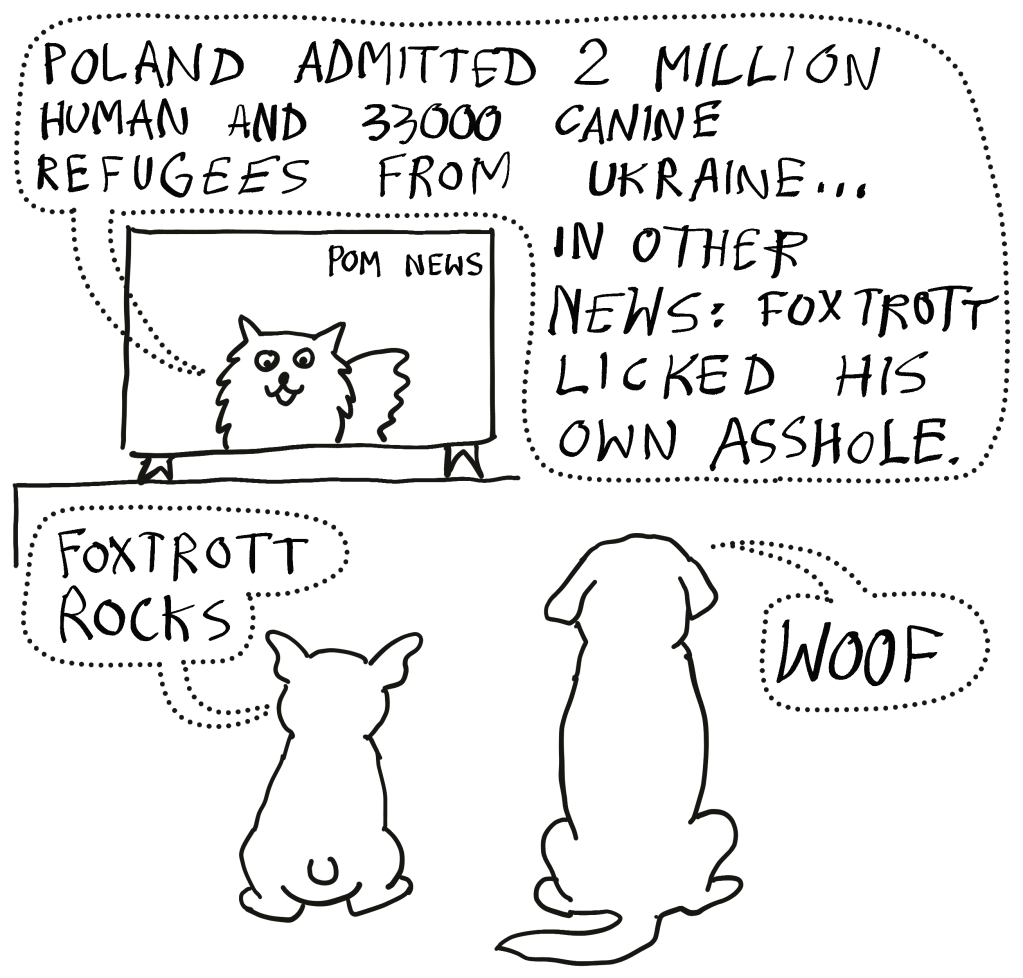 POLAND ADMITTED 2 MILLION
HUMAN AND 33000 CANINE
REFUGEES FROM UKRAINE...
IN OTHER
NEWS: FOXTROTT
LICKED HIS
OWN ASSHOLE.
POM NEWS
FOXTROTT
ROCKS
WOOF